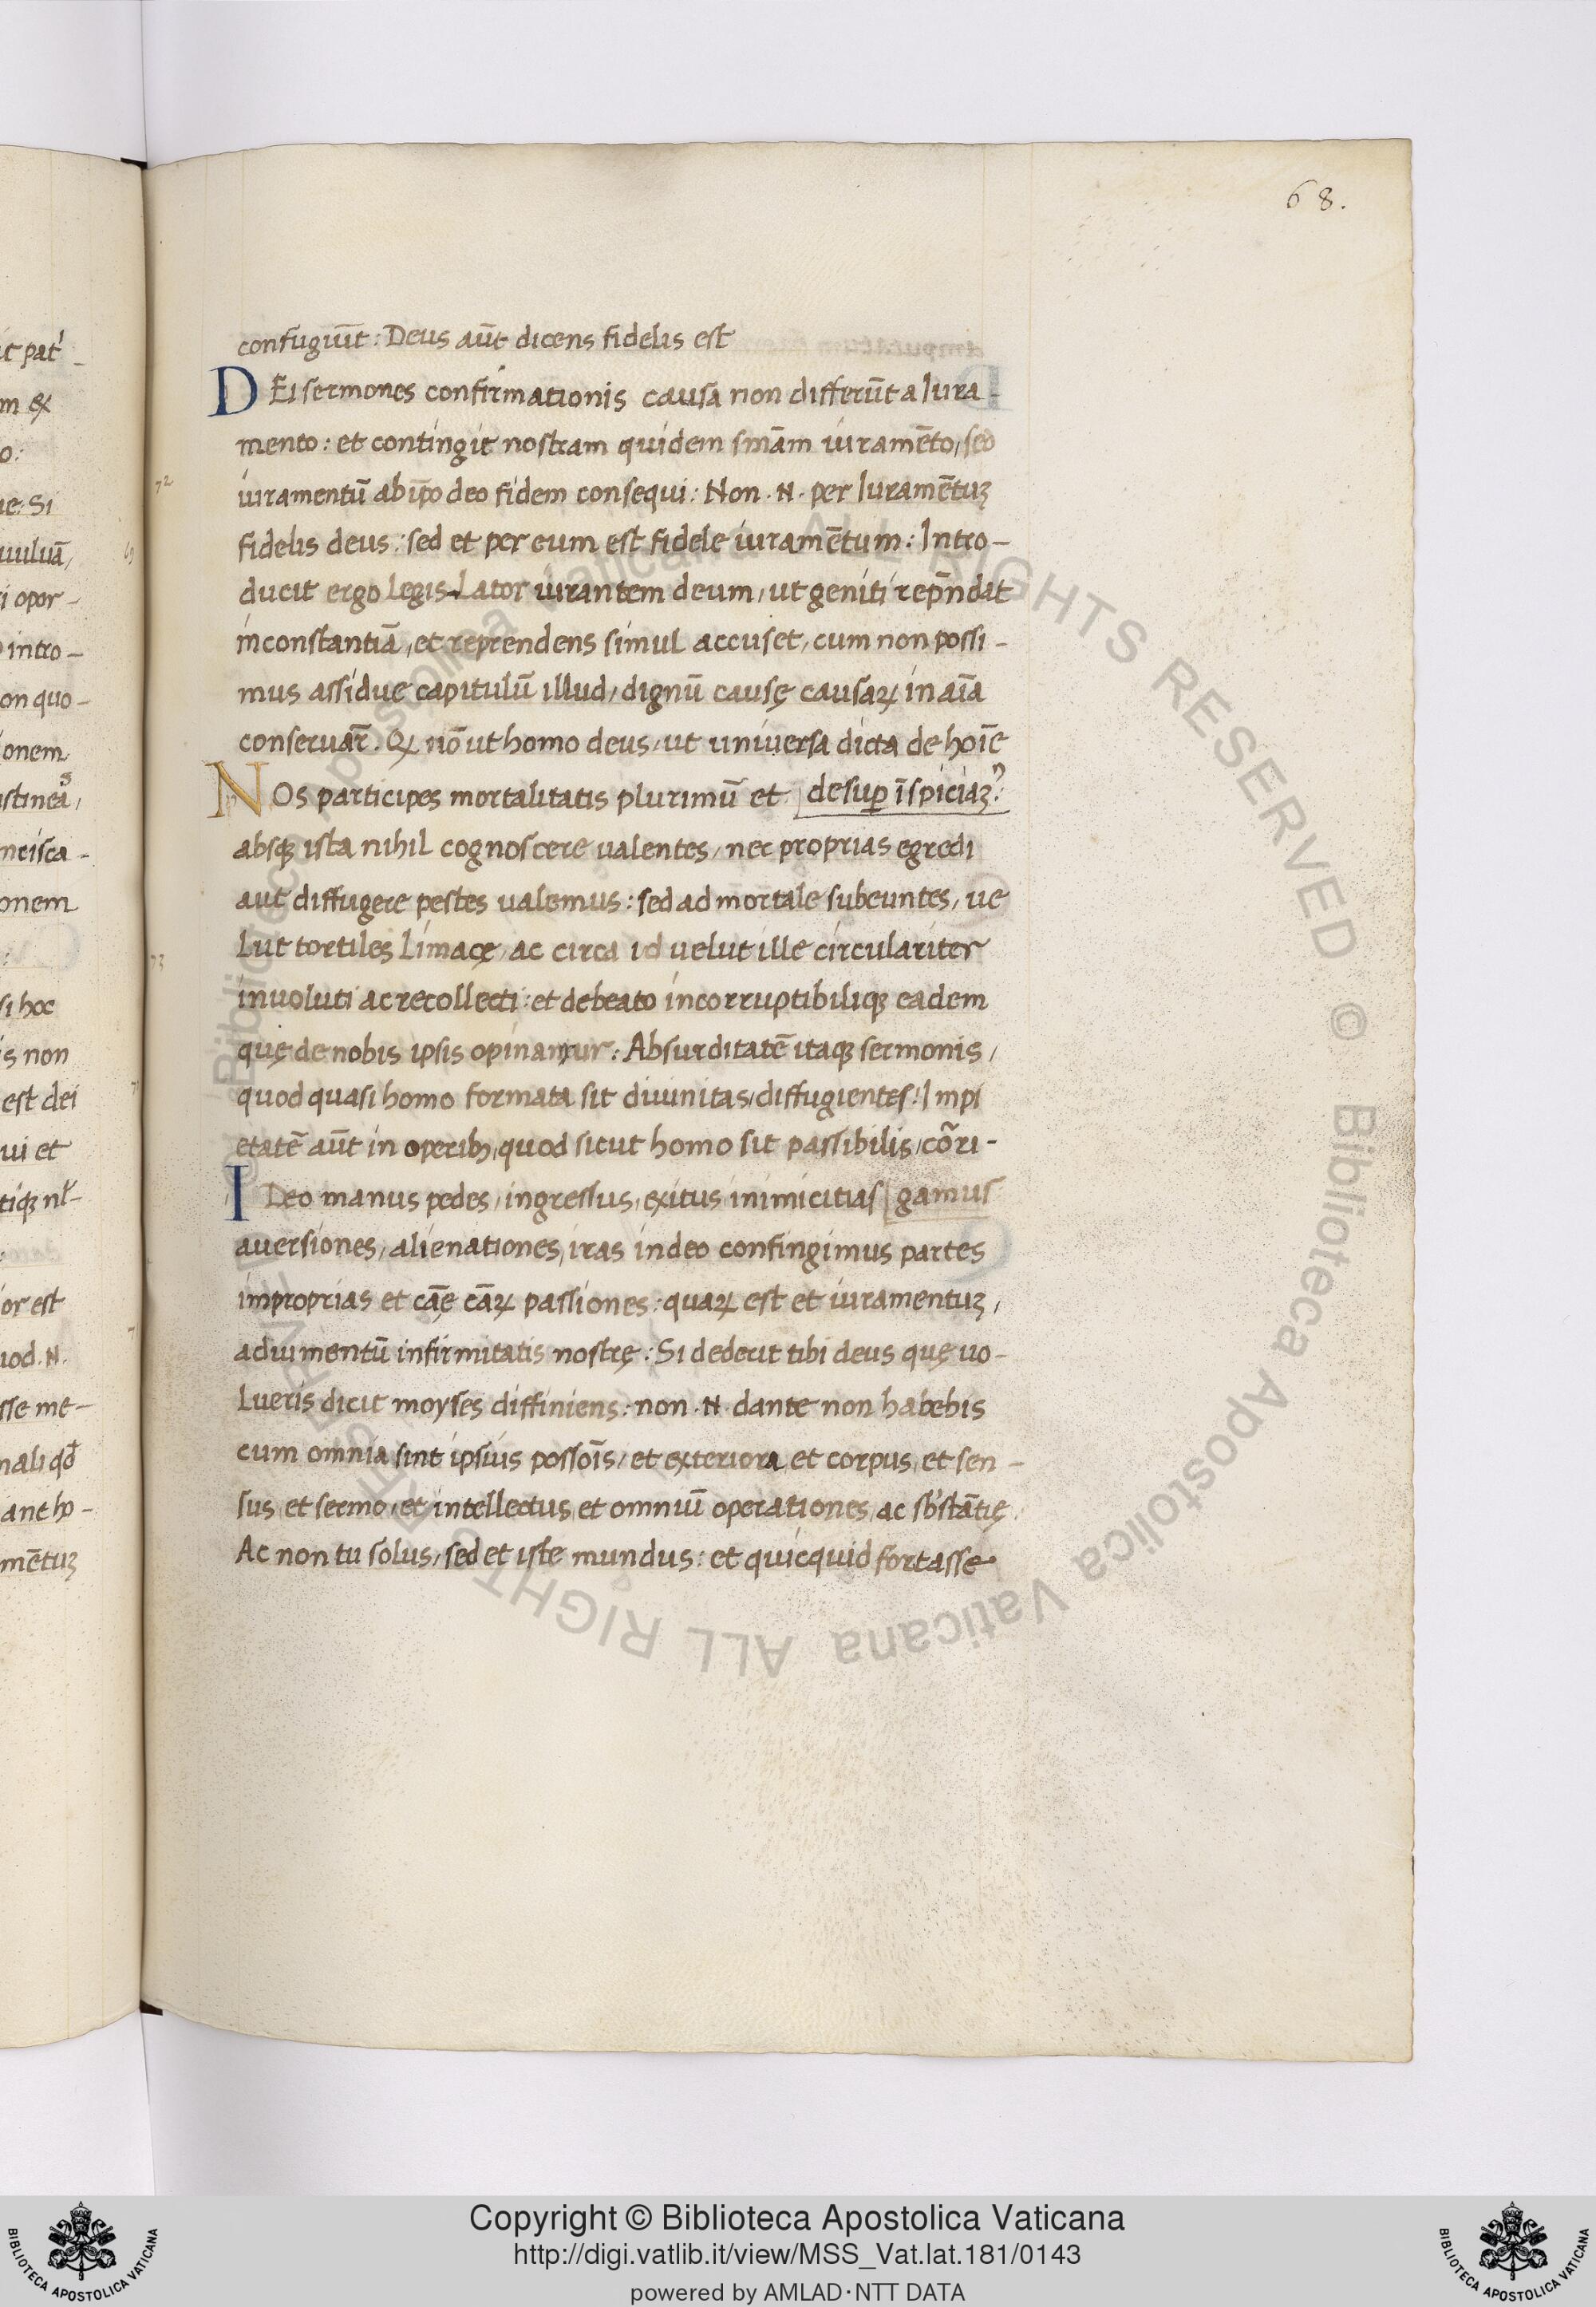 68.
confugiūt: Deus aūt dicens fidelis est
DEi sermones confirmationis causa non differūt a Iura-
mento: et contingit nostram quidem sniām iuramēto, seo
iuramentū ab ip̄o deo fidem consequi: Non .N. per Iuramētuꝫ
fidelis deus: sed et per eum est fidele iuramētum: Intro-
ducit ergo Legis-Lator iurantem deum, ut geniti rep̄ndat
inconstantiā, et reprendens simul accuset, cum non possi-
mus assidue capitulū illud, dignū causę causaꝝ in aīa
conseruar̄. Qꝫ nō ut homo deus, ut universa dicta de hoīe
NOs participes mortalitatis plurimū et desuꝑ īspiciaꝫ?
absqꝫ ista nihil cognoscere ualentes, nec proprias egredi
aut diffugere pestes ualemus: sed ad mortale subeuntes, ue
Lut tortiles Limacę, ac circa id velut ille circulariter
involuti ac recollecti: et de beato incorruptibiliqꝫ eadem
quę de nobis ipsis opinamur: Absurditatē itaqꝫ sermonis,
quod quasi homo formata sit divinitas, diffugientes: Impi
etatē aūt in operibꝫ, quod sicut homo sit passibilis, cōri-
IDeo manus pedes, ingressus, exitus inimicitias gamus
aversiones, alienationes, iras in deo confingimus partes
improprias et cāę cāꝝ passiones: quaꝝ est et iuramentuꝫ,
adiumentū infirmitatis nostrę: Si dederit tibi deus quę uo-
Lueris dicit moyses diffiniens: non .N. dante non habebis
cum omnia sint ipsius possoīs, et exteriora, et corpus, et sen-
sus, et sermo, et intellectus, et omniū operationes, ac sb'stātię
Ac non tu solus, sed et iste mundus: et quicquid fortasse
Copyright © Biblioteca Apostolica Vaticana
http://digi.vatlib.it/view/MSS_Vat.lat.181/0143
powered by AMLAD·NTT DATA